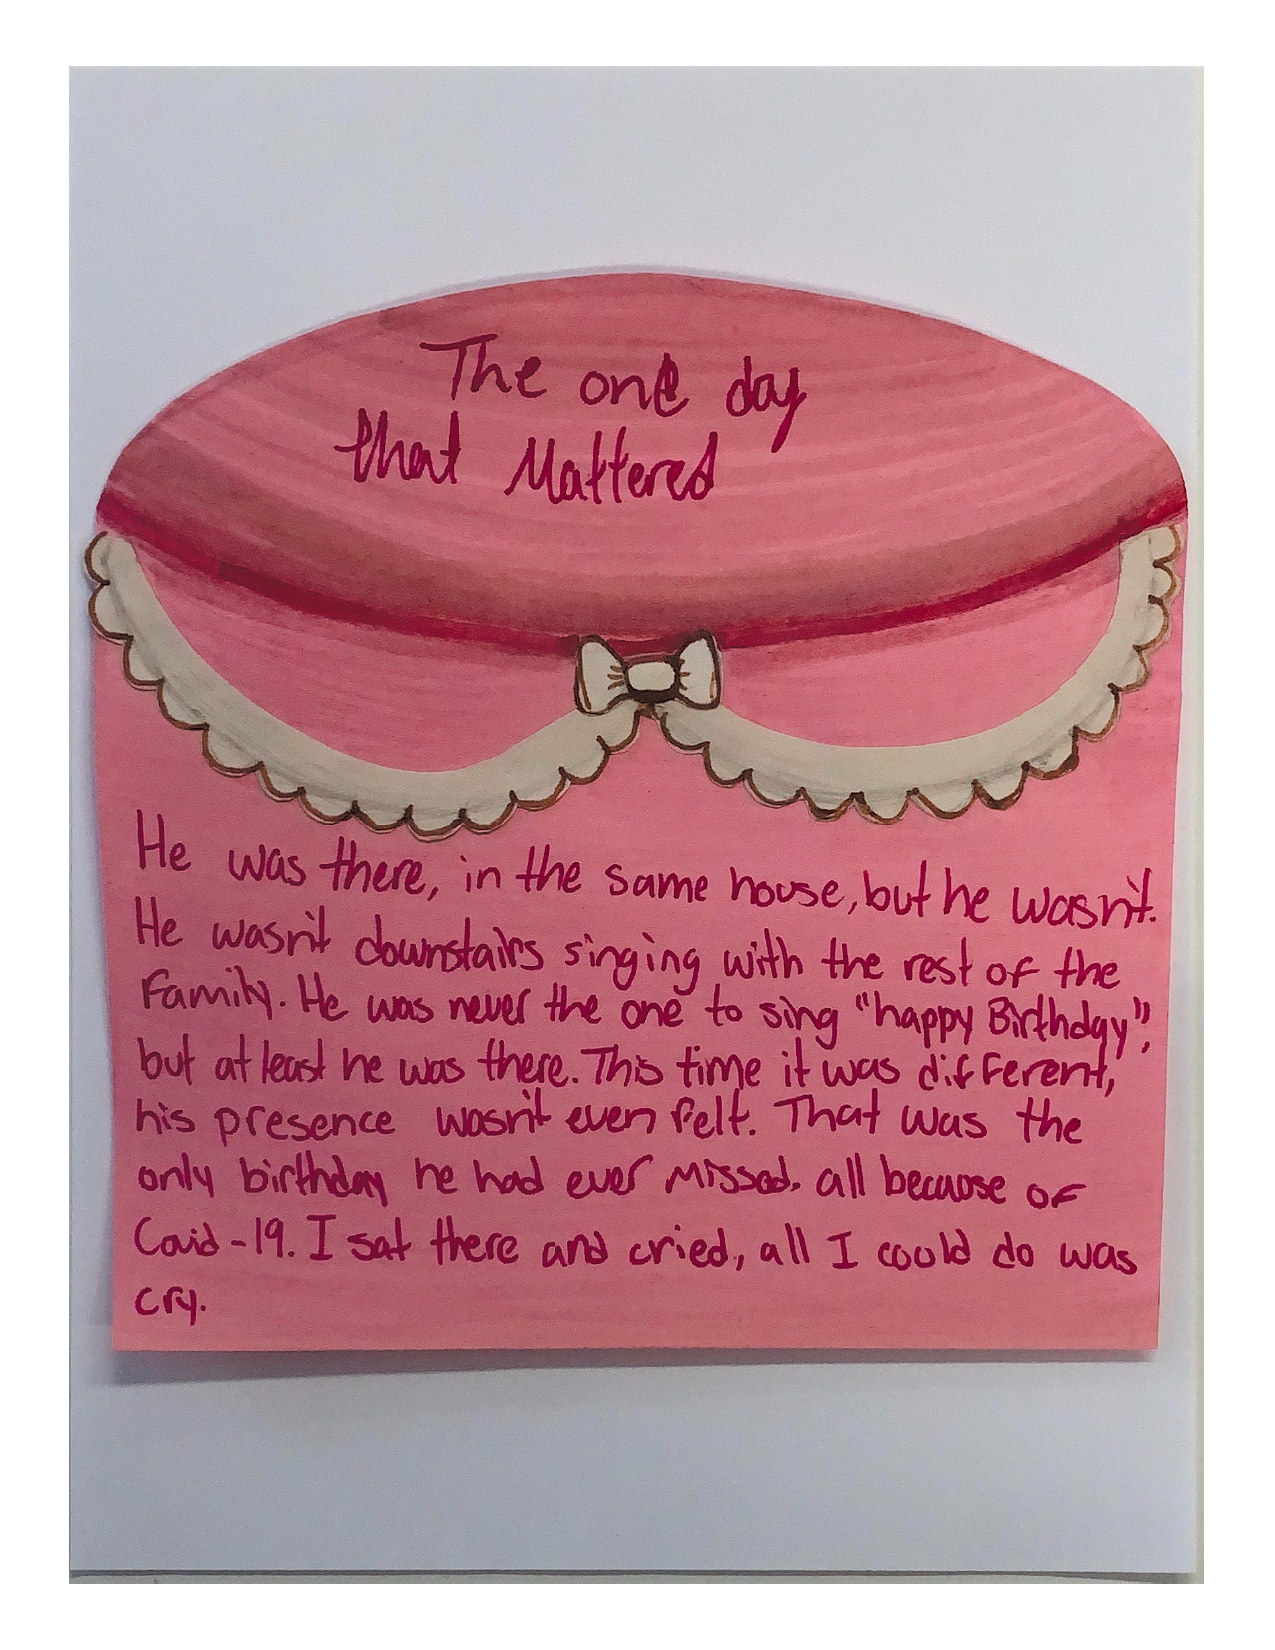 The one day
that Mattered
He was there, in the same house, but he wasn't.
He wasn't downstairs singing with the rest of the
Family. He was never the one to sing "happy Birthday",
but at least he was there. This time it was different,
his presence wasn't even felt. That was the
only birthday he had ever missed, all because of
Covid-19. I sat there and cried, all I could do was
cry.